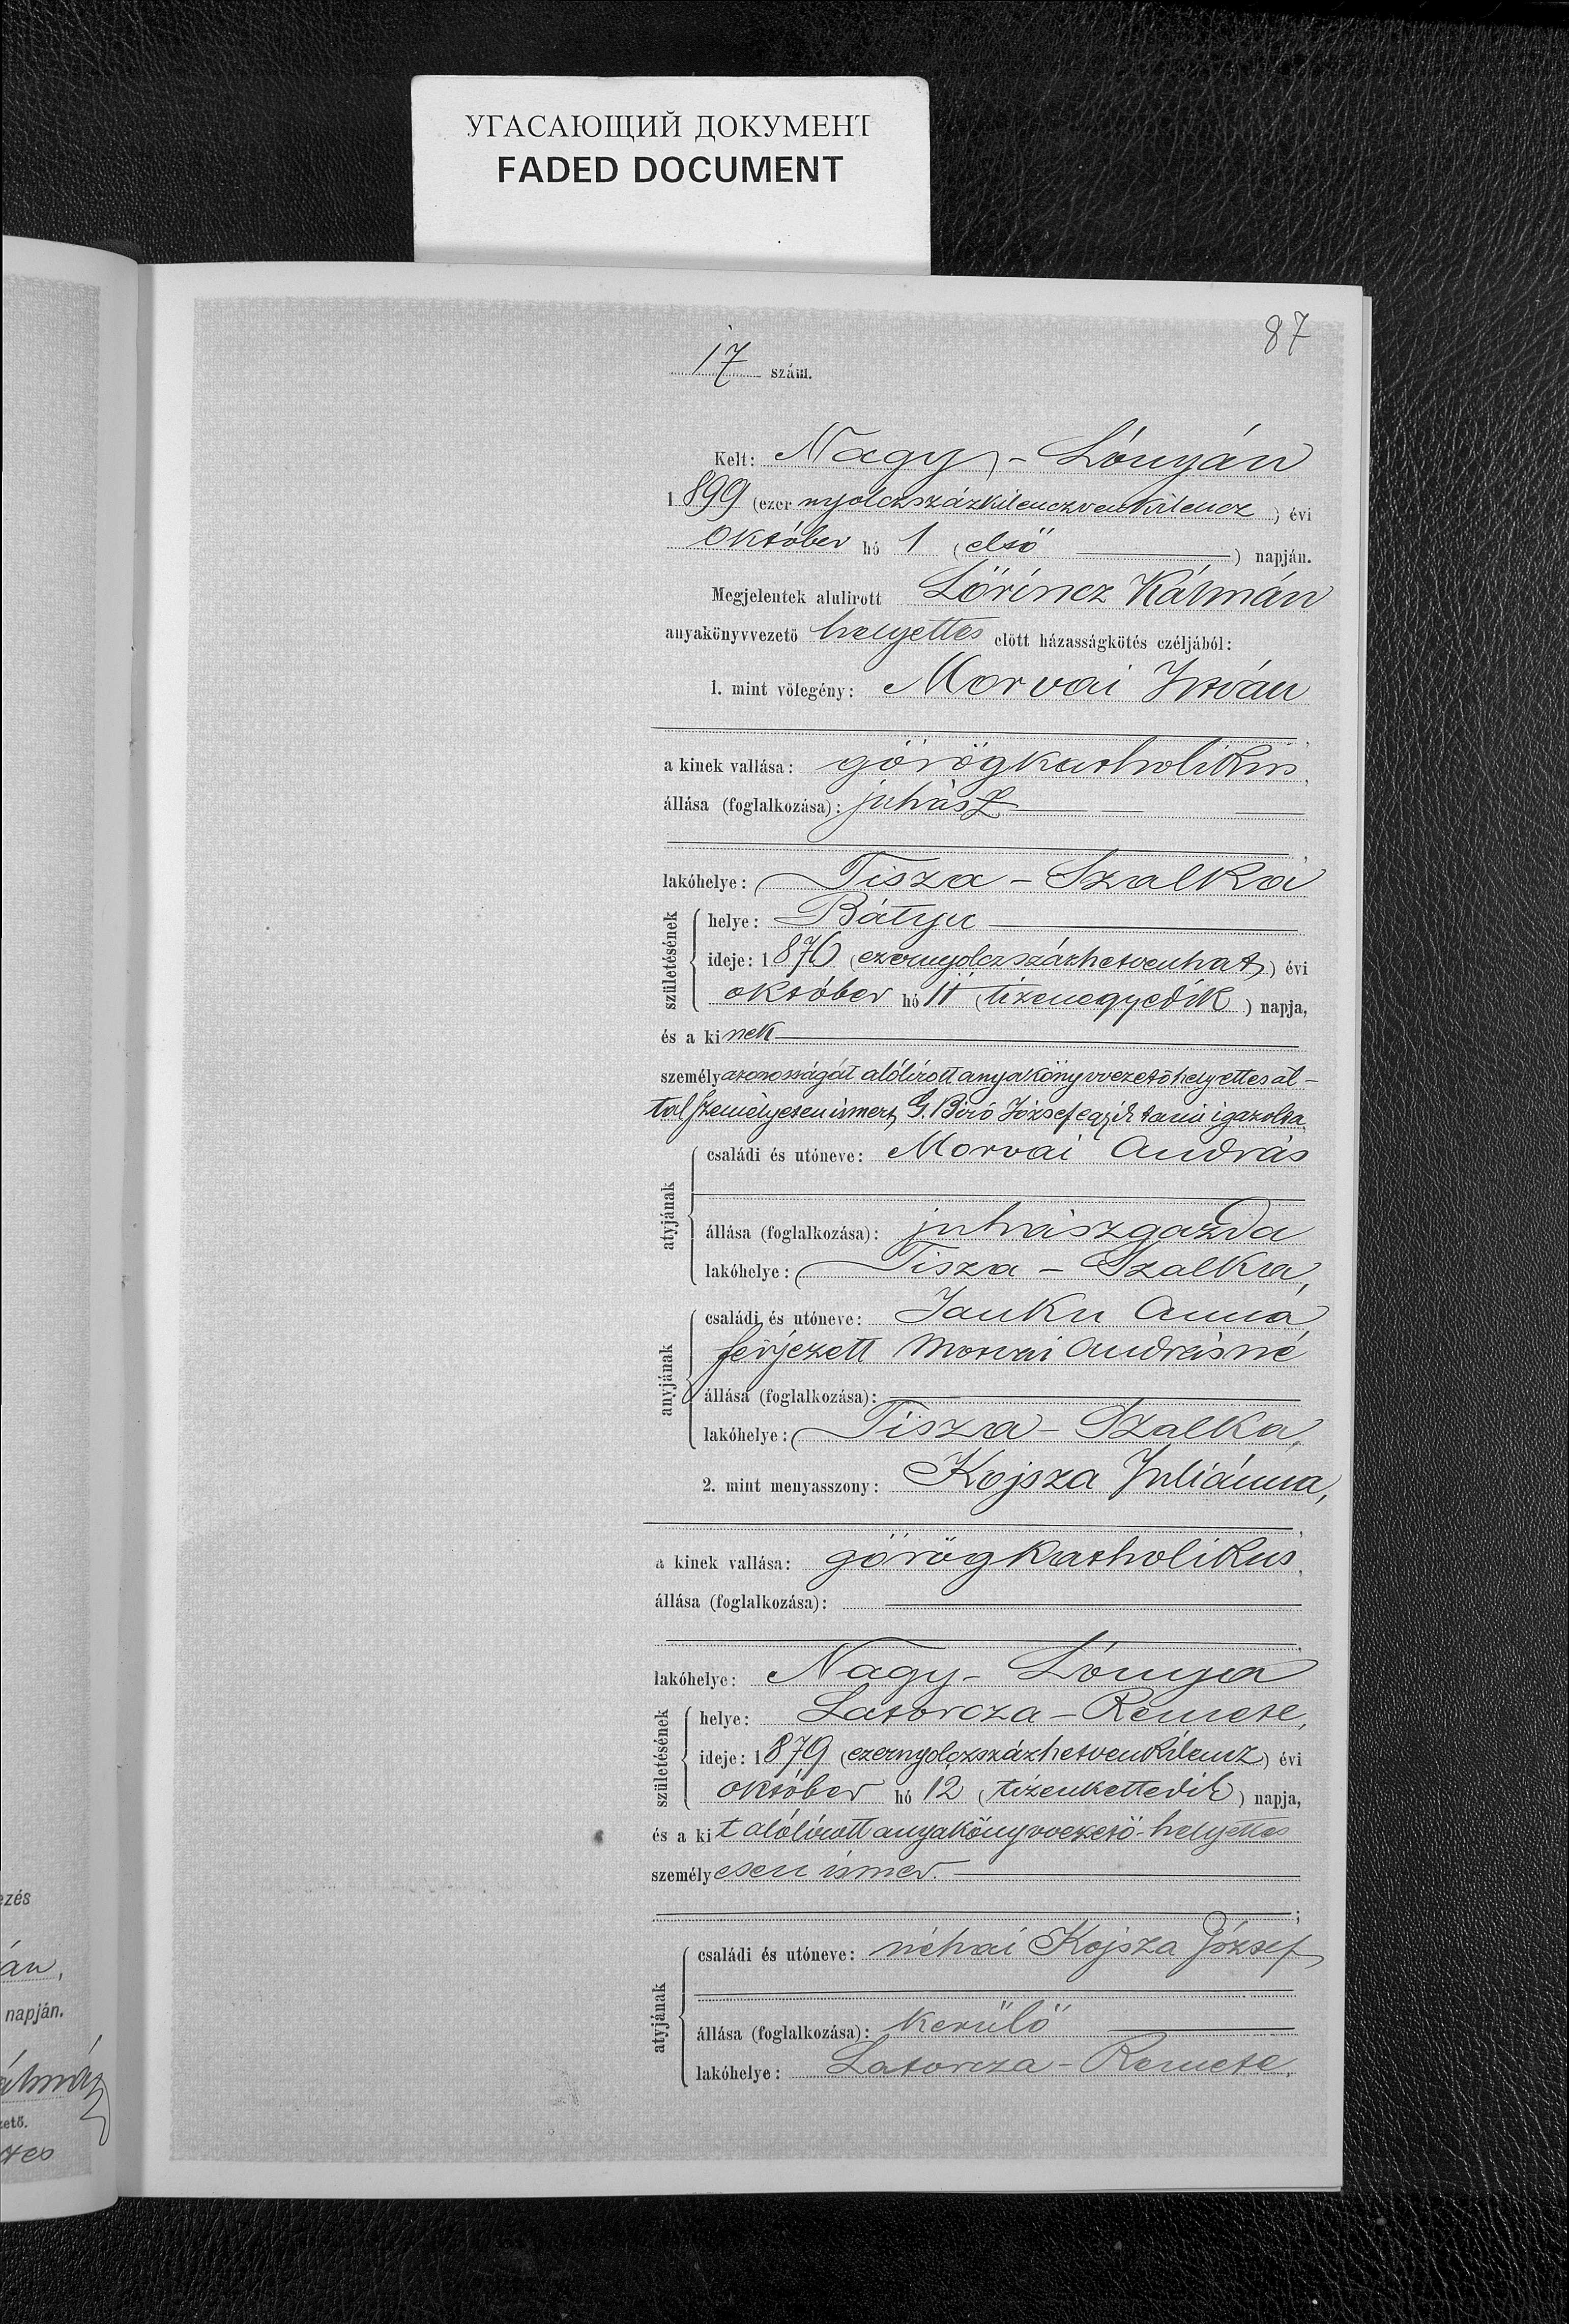 УГАСАЮЩИЙ ДОКУМЕНТ
FADED DOCUMENT
87
17 szám.
Kelt: Nagy-Lónyán
1899 (ezer nyolczszázkilenczvenkilencz) évi
október hó 1 (első) napján.
Megjelentek alulirott Lőrincz Kálmán
anyakönyvvezető helyettes előtt házasságkötés czéljából:
1. mint vőlegény: Morvai István
a kinek vallása: görögkatholikus,
állása (foglalkozása): juhász
lakóhelye: Tisza-Szalka
születésének
helye: Bátyu
ideje: 1876 (ezernyolczszázhetvenhat) évi
október hó 11 (tizenegyedik) napja,
és a kinek
személyazonosságát alólirott anyakönyvvezető helyettes ál-
tal személyesen ismert G. Biró József egyik tanú igazolta.
atyjának
családi és utóneve: Morvai András
állása (foglalkozása): juhászgazda
lakóhelye: Tisza-Szalka,
anyjának
családi és utóneve: Janku Anna
férjezett Morvai Andrásné
állása (foglalkozása):
lakóhelye: Tisza-Szalka,
2. mint menyasszony: Kojsza Juliánna,
a kinek vallása: görögkatholikus,
állása (foglalkozása):
lakóhelye: Nagy-Lónya
születésének
helye: Latorcza-Remete,
ideje: 1879 (ezernyolczszázhetvenkilencz) évi
október hó 12 (tizenkettedik) napja,
és a kit alólirott anyakönyvvezető-helyettes
személyesen ismer.
atyjának
családi és utóneve: néhai Kojsza József
állása (foglalkozása): kerülő
lakóhelye: Latorcza-Remete,
ezés
án,
napján.
álmán
zető.
ttes